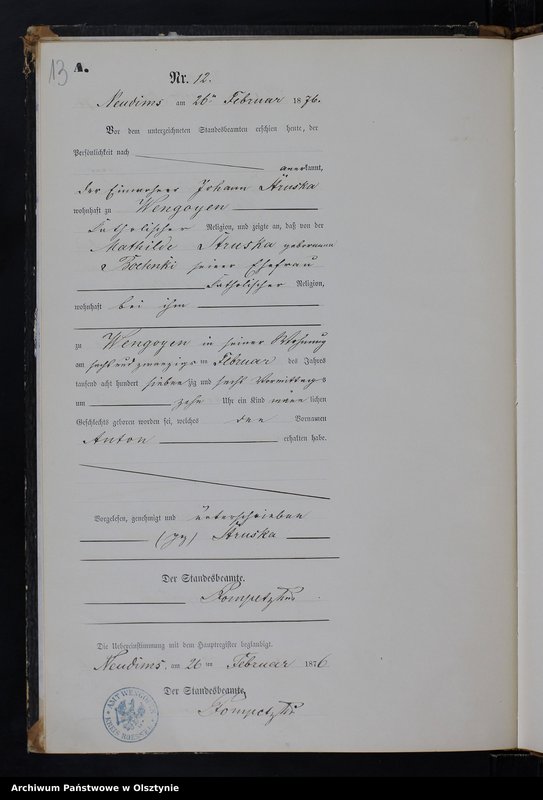 13
A.
Nr. 12.
Neudims am 26ten Februar 1876.
Vor dem unterzeichneten Standesbeamten erschien heute, der
Persönlichkeit nach
anerkannt,
der Einwohner Johann Struska
wohnhaft zu Wengoyen
katholischer Religion, und zeigte an, daß von der
Mathilde Struska geborenen
seiner Ehefrau
katholischer Religion,
wohnhaft bei ihm
zu Wengoyen in seiner Wohnung
am sechs und zwanzigsten Februar des Jahres
tausend acht hundert siebenzig und sechs Vormittags
um zehn Uhr ein Kind männlichen
Geschlechts geboren worden sei, welches den Vornamen
Anton erhalten habe.
Vorgelesen, genehmigt und unterschrieben
(gz) Struska
Der Standesbeamte.
Die Uebereinstimmung mit dem Hauptregister beglaubigt.
Neudims, am 26ten Februar 1876
Der Standesbeamte.
AMT WENGOYEN
KREIS ROESSEL
Archiwum Państwowe w Olsztynie